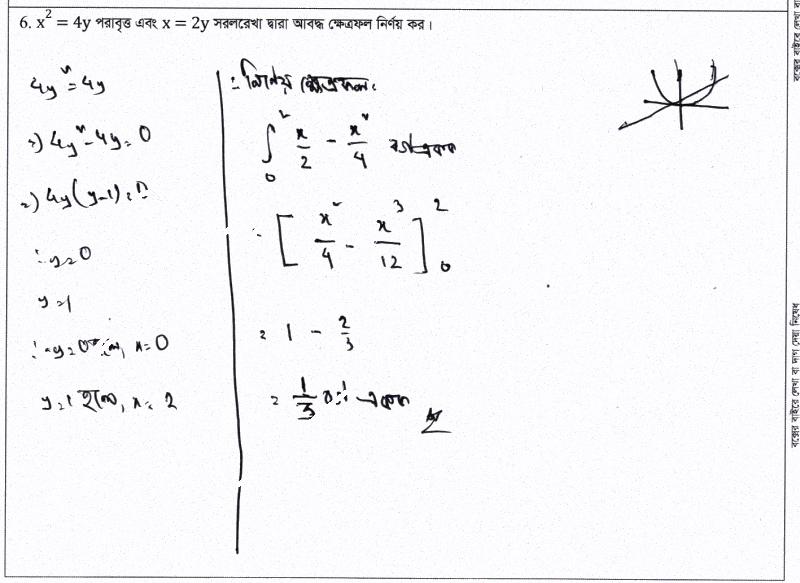 6. x² = 4y পরাবৃত্ত এবং x = 2y সরলরেখা দ্বারা আবদ্ধ ক্ষেত্রফল নির্ণয় কর।
4y² = 4y
⇒) 4y² - 4y = 0
⇒) 4y(y-1) = 0
∴ y = 0
y = 1
∴ y = 0 হলে, x = 0
y = 1 হলে, x = 2
∴ নির্ণেয় ক্ষেত্রফল =
∫₀² x/2 - x²/4 বর্গএকক
= [x²/4 - x³/12]₀²
= 1 - 2/3
= 1/3 বর্গ একক
বক্সের বাইরে লেখা বা দাগ দেয়া নিষেধ